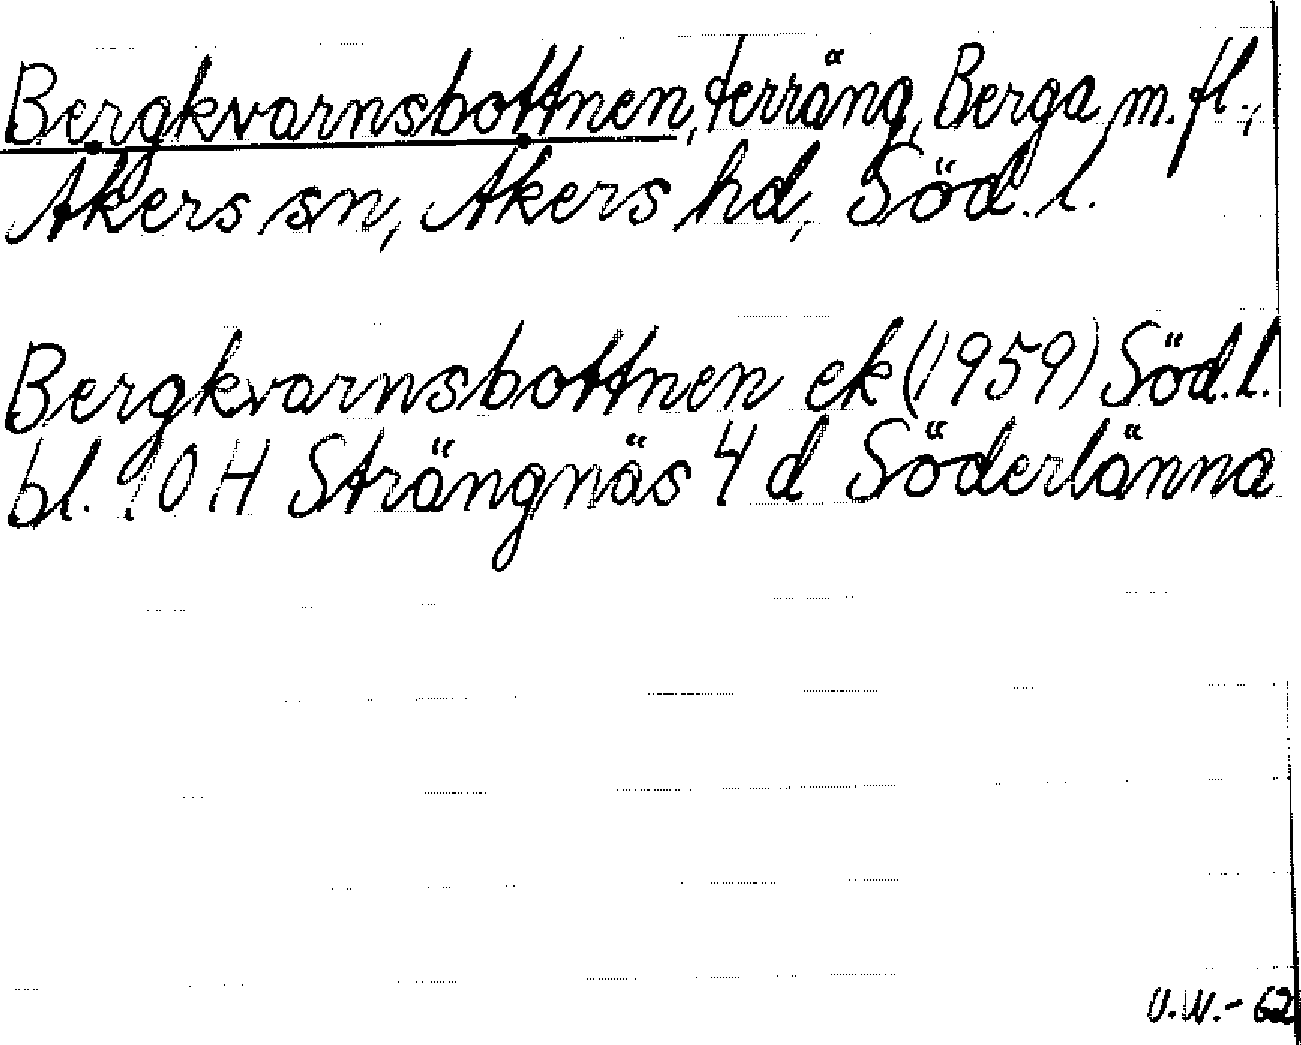 Bergkvarnsbottnen, terräng, Berga m. fl.,
Åkers sn, Åkers hd, Söd. l.
Bergkvarnsbottnen ek (1959) Söd. l.
bl. 10 H Strängnäs 4 d Söderlänna
U.W.-62